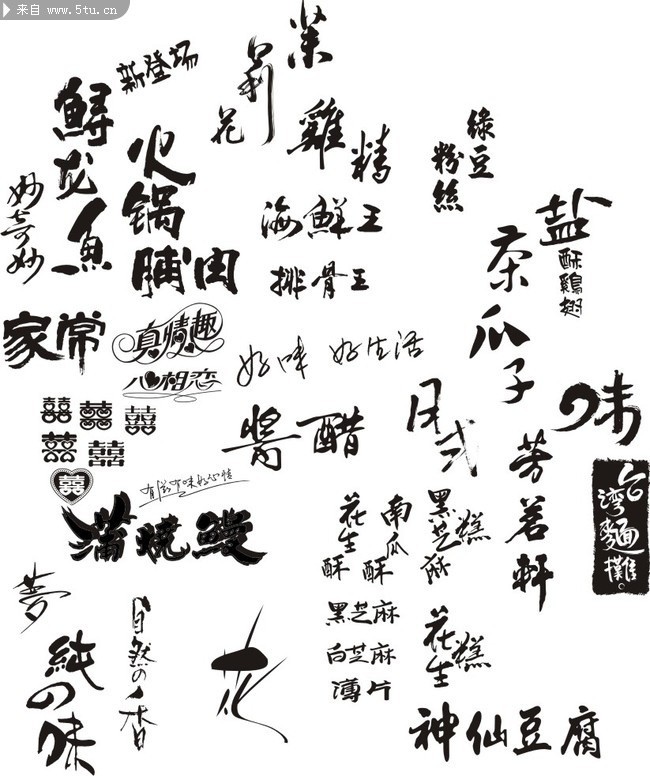 来自 www.5tu.cn
新登场
茉莉花
鲟龙鱼
火锅
脯肉
妙奇妙
雞精
海鮮王
排骨王
綠豆
粉絲
盐
酥鷄翅
茶瓜子
家常
真情趣
心相恋
好味 好生活
囍囍囍
囍囍
囍
醬醋
日式
味
芳茗軒
台灣麵攤
有滋有味好心情
蒲燒鰻
花生酥
南瓜酥
黑芝麻糕
黑芝麻
白芝麻
薄片
花生糕
夢
純の味
自然の香
花
神仙豆腐